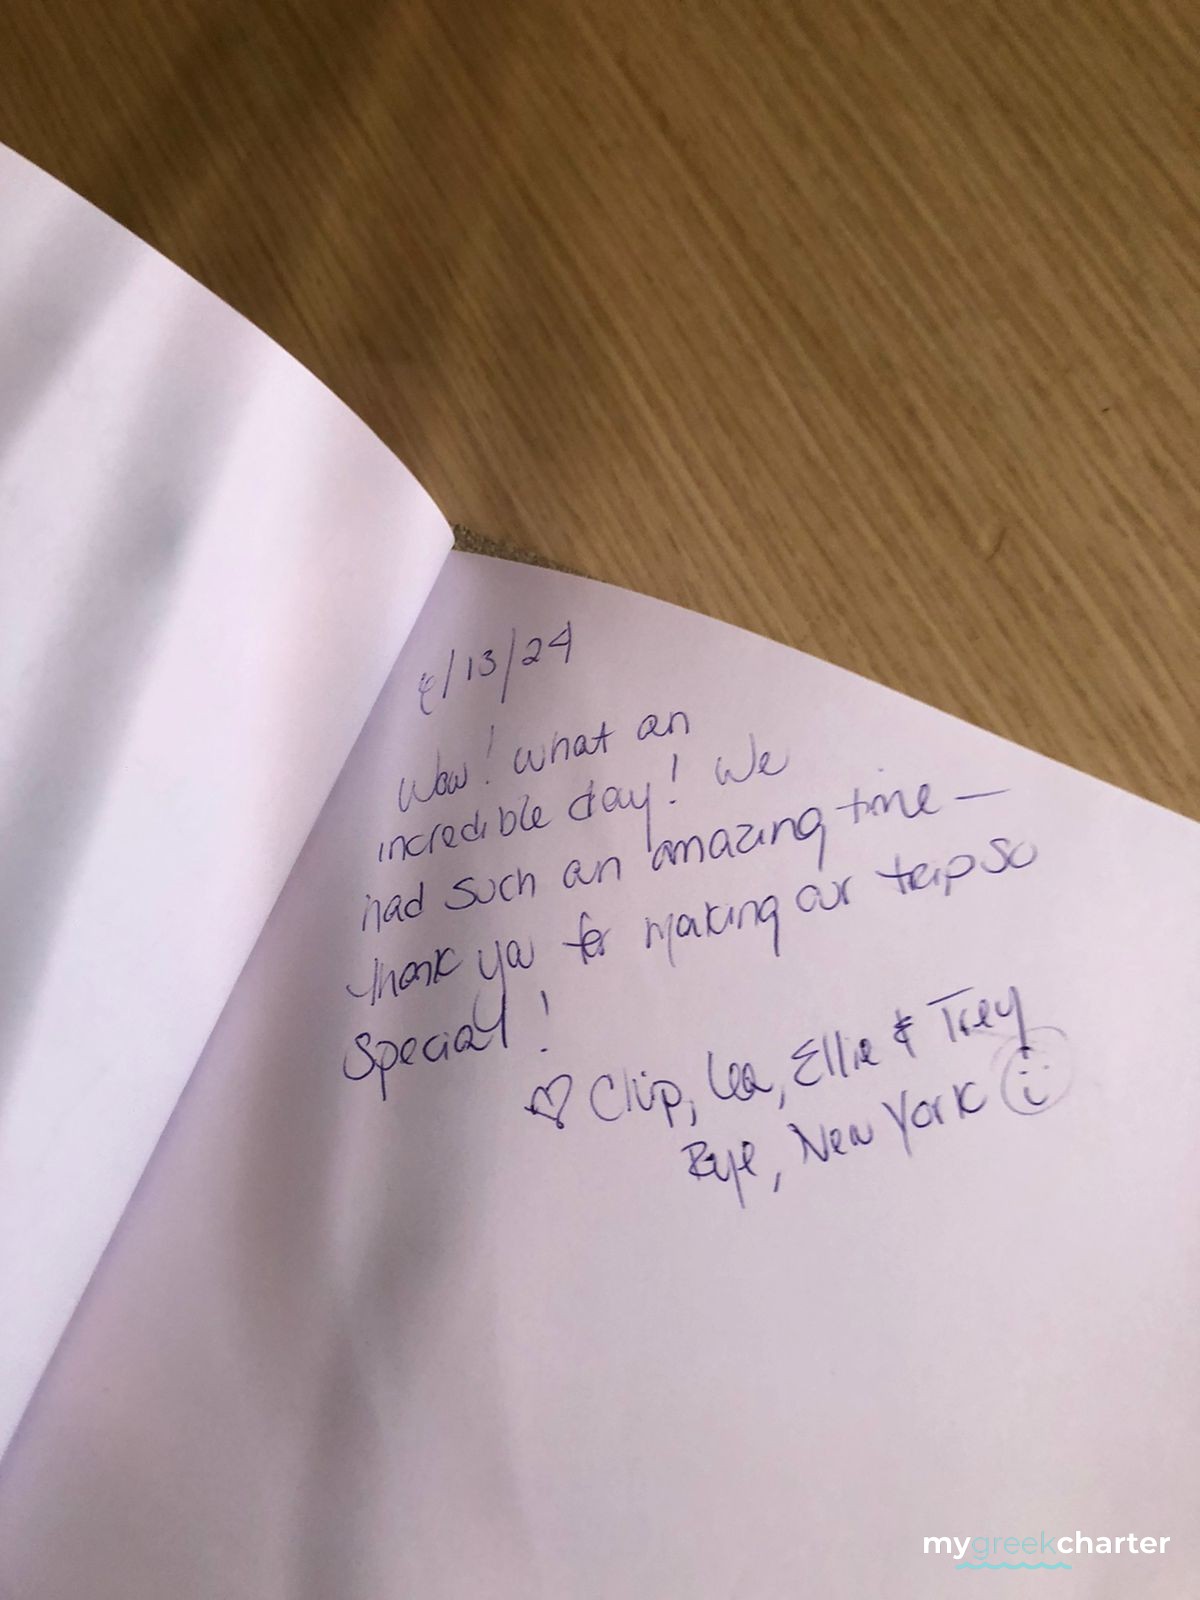 /13/24
Wow! What an
incredible day! We
had such an amazing time —
thank you for making our trip so
special!
♡ Chip, Lea, Ellie & Trey
Rye, New York ☺
mygreekcharter